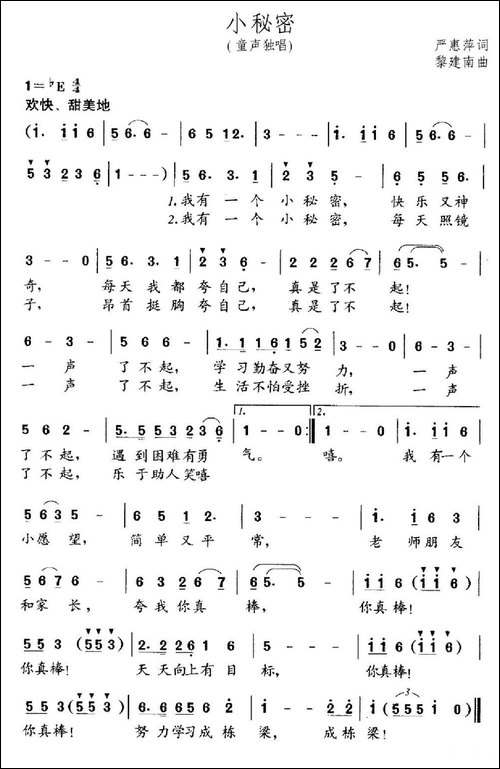 小秘密
(童声独唱)
严惠萍 词
黎建南 曲
1=♭E 4/4
欢快、甜美地
(i. i i 6 | 5 6. 6 - | 6 5 1 2. | 3 - - - | i. i i 6 | 5 6. 6 - |
5 3 2 3 6 | 1 - - -) | 5 5. 3. 1 | 2 3 5 - | 6 5 5 6
1.我有 一 个 小秘密, 快乐又神
2.我有 一 个 小秘密, 每天照镜
3 - - 0 | 5 6. 3. 1 | 2 3 6 - | 2 2 2 6 7 | 6 5. 5 -
奇, 每天我都 夸自己, 真是了不 起!
子, 昂首挺胸 夸自己, 真是了不 起!
6 - 3 - | 5 5 6 - | 1. 1 1 6 1 5 2 | 3 - - 0 | 6 - 3 -
一 声 了不起, 学习勤奋又努 力, 一 声
一 声 了不起, 生活不怕受挫 折, 一 声
5 6 2 - | 5. 5 5 3 2 3 6 | 1. 1 - - 0 :| 2. 1 - - 0 | i. i i 6
了不起, 遇到困难有勇 气。 嘻。 我有一个
了不起, 乐于助人笑嘻
5 6 3 5 - | 6 5 1 2. | 3 - - - | i. i 6 3
小愿望, 简单又平 常, 老师朋友
5 6 7 6 - | 2 2 6 7 | 6 5. 5 - | i i 6 (i i 6)
和家长, 夸我你真 棒, 你真棒!
5 5 3 (5 5 3) | 2. 2 2 6 1 6 | 5 - - - | i i 6 (i i 6)
你真棒! 天天向上有目 标, 你真棒!
5 5 3 (5 5 3) | 6. 6 6 5 6 2 | i - - - | 2 2 - | i (5 5 5 i 0)
你真棒! 努力学习成栋 梁, 成栋 梁!